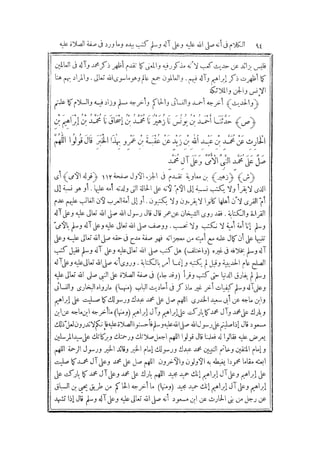 ٩٤ الكلام فى أنه صلى الله عليه وعلى آله وسلم كتب بيده وما ورد فى صفة الصلاة عليه
فليس بزائد عن حديث كعب لأنه مذكور فيه والمعنى كما تقدم أظهر ذكر محمد وآله فى العالمين
كما أظهرت ذكر إبراهيم وآله فيهم . والعالمون جمع عالم وهو ماسوى الله تعالى . والمراد بهم هنا
الإنس والجن والملائكة
﴿والحديث﴾ أخرجه أحمد والنسائى والحاكم وأخرجه مسلم وزاد فيه والسلام كما علمتم
﴿ص﴾ حَدَّثَنَا أَحْمَدُ بْنُ يُونُسَ نَا زُهَيْرٌ نَا مُحَمَّدُ بْنُ إِسْحَاقَ نَا مُحَمَّدُ بْنُ إِبْرَاهِيمَ بْنِ
الْحَارِثِ عَنْ مُحَمَّدِ بْنِ عَبْدِ اللهِ بْنِ زَيْدٍ عَنْ عُقْبَةَ بْنِ عَمْرٍو بِهَذَا الْخَبَرِ قَالَ قُولُوا اللَّهُمَّ
صَلِّ عَلَى مُحَمَّدٍ النَّبِيِّ الْأُمِّيِّ وَعَلَى آلِ مُحَمَّدٍ
﴿ش﴾ ﴿زهير﴾ بن معاوية تقدم فى الجزء الأول صفحة ١١٢ ﴿قوله الأمى﴾ أى
الذى لايقرأ ولا يكتب نسبة إلى الأم لأنه على الحالة التى ولدته أمه عليها . أو هو نسبة إلى
أم القرى لأن أهلها كانوا لا يقرءون ولا يكتبون . أو إلى أمة العرب لأن الغالب عليهم عدم
القراءة والكتابة . فقد روى الشيخان عن ابن عمر قال قال رسول الله صلى الله تعالى عليه وعلى آله
وسلم إنا أمة أمية لا نكتب ولا نحسب . ووصف صلى الله تعالى عليه وعلى آله وسلم بالأمى
تنبيها على أن كمال علمه مع أميته من معجزاته فهو صفة مدح فى حقه صلى الله تعالى عليه وعلى
آله وسلم بخلافه فى غيره ﴿واختلف﴾ هل كتب صلى الله تعالى عليه وعلى آله وسلم فقيل كتب
الصلح عام الحديبية وقيل لم يكتبه وإنما أمر بالكتابة . وروى أنه صلى الله تعالى عليه وعلى آله
وسلم لم يفارق الدنيا حتى كتب وقرأ ﴿وقد جاء﴾ فى صفة الصلاة على النبى صلى الله تعالى عليه
وعلى آله وسلم كيفيات أخر غير ماذكر فى أحاديث الباب ﴿منها﴾ مارواه البخارى والنسائى
وابن ماجه عن أبى سعيد الخدرى اللهم صل على محمد عبدك ورسولك كما صليت على إبراهيم
وبارك على محمد وآل محمد كما باركت على إبراهيم وآل إبراهيم ﴿ومنها﴾ ما أخرجه ابن ماجه عن ابن
مسعود قال إذا صليتم على رسول الله صلى الله عليه وسلم فأحسنوا الصلاة عليه فإنكم لاتدرون لعل ذلك
يعرض عليه فقالوا له فعلمنا قال قولوا اللهم اجعل صلاتك ورحمتك وبركاتك على سيد المرسلين
وإمام المتقين وخاتم النبيين محمد عبدك ورسولك إمام الخير وقائد الخير ورسول الرحمة اللهم
ابعثه مقاما محمودا يغبطه به الأولون والآخرون اللهم صل على محمد وعلى آل محمد كما صليت
على إبراهيم وعلى آل إبراهيم إنك حميد مجيد اللهم بارك على محمد وعلى آل محمد كما باركت على
إبراهيم وعلى آل إبراهيم إنك حميد مجيد ﴿ومنها﴾ ما أخرجه الحاكم من طريق يحيى بن السباق
عن رجل من بنى الحارث عن ابن مسعود أنه صلى الله تعالى عليه وعلى آله وسلم قال إذا تشهد